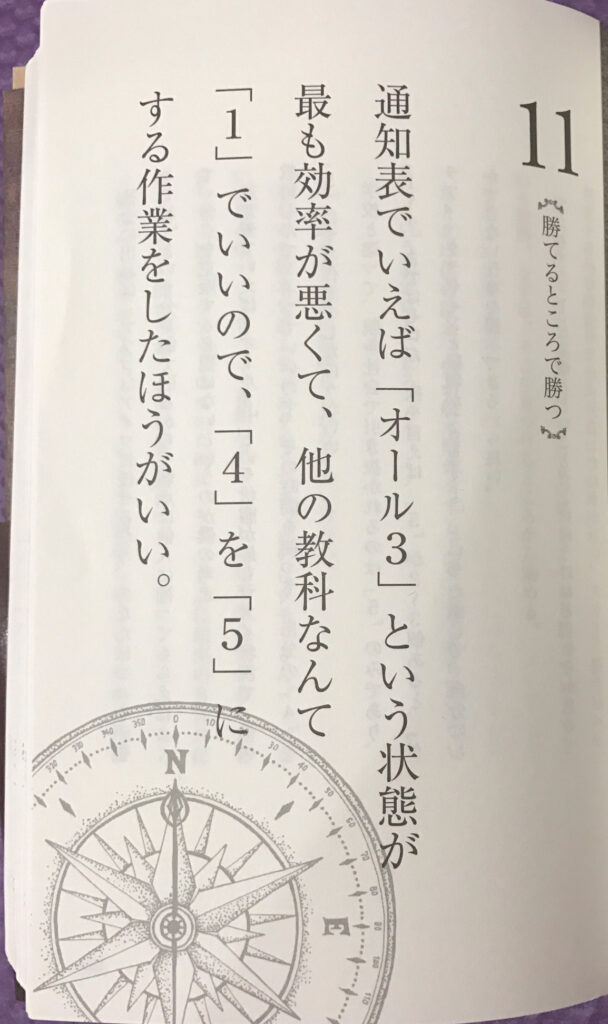 11
【勝てるところで勝つ】
通知表でいえば「オール3」という状態が
最も効率が悪くて、他の教科なんて
「1」でいいので、「4」を「5」に
する作業をしたほうがいい。
N
E
350
0
10